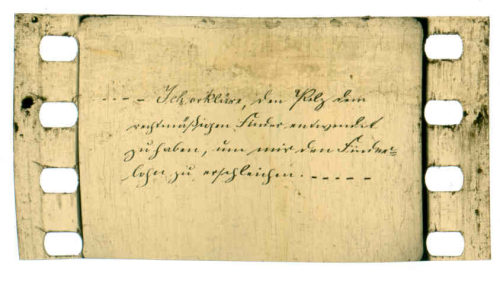 ---- Ich erkläre, den Pelz dem
rechtmäßigen Finder entwendet
zu haben, um mir den Finder=
lohn zu erschleichen. -----